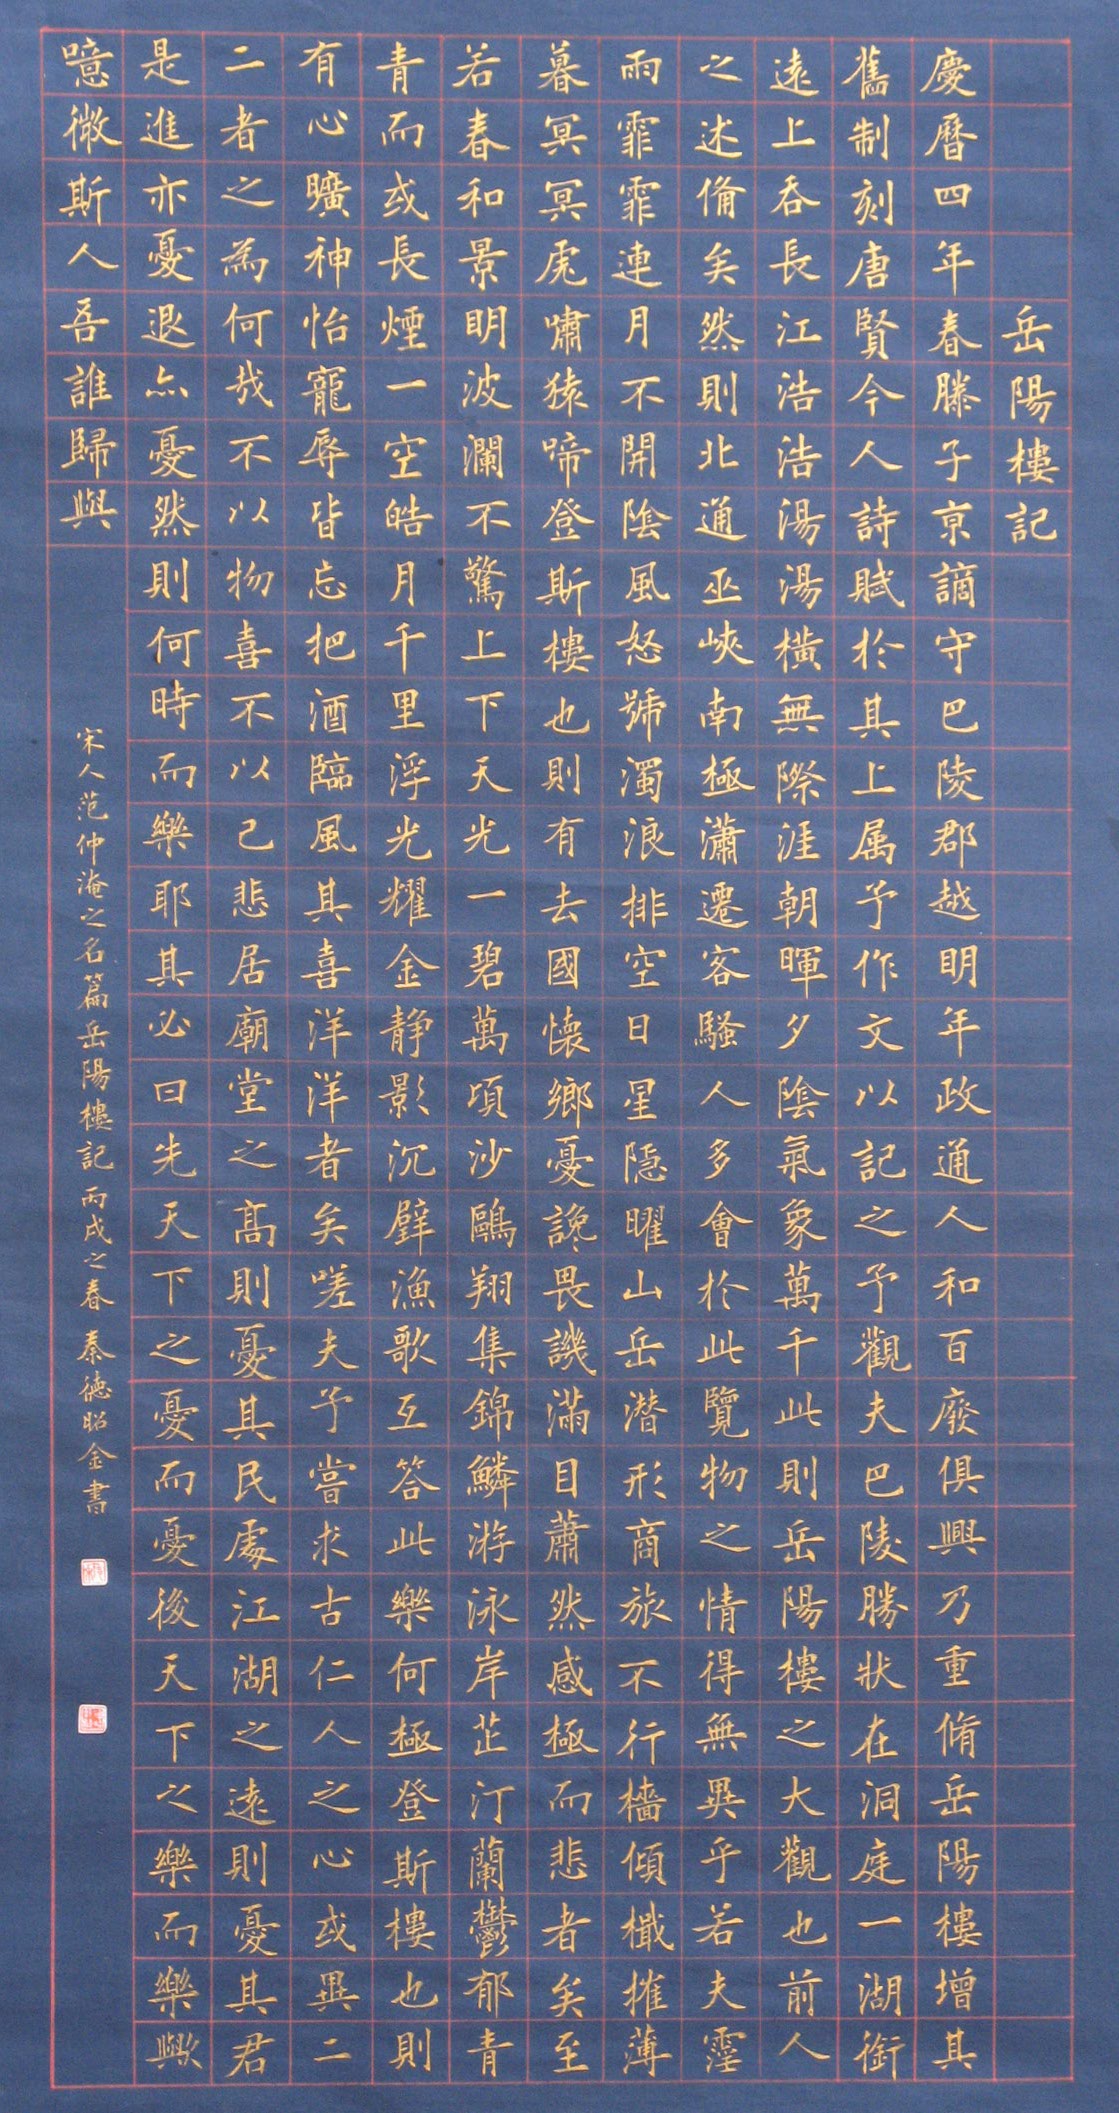 岳陽樓記
慶曆四年春滕子京謫守巴陵郡越明年政通人和百廢俱興乃重脩岳陽樓增其
舊制刻唐賢今人詩賦於其上属予作文以記之予觀夫巴陵勝狀在洞庭一湖銜
遠上吞長江浩浩湯湯橫無際涯朝暉夕陰氣象萬千此則岳陽樓之大觀也前人
之述俻矣然則北通巫峽南極瀟遷客騷人多會於此覽物之情得無異乎若夫霪
雨霏霏連月不開陰風怒號濁浪排空日星隱曜山岳潛形商旅不行檣傾檝摧薄
暮冥冥虎嘯猿啼登斯樓也則有去國懷鄉憂讒畏譏滿目蕭然感極而悲者矣至
若春和景明波瀾不驚上下天光一碧萬頃沙鷗翔集錦鱗游泳岸芷汀蘭鬱郁青
青而或長煙一空皓月千里浮光耀金静影沉璧漁歌互答此樂何極登斯樓也則
有心曠神怡寵辱皆忘把酒臨風其喜洋洋者矣嗟夫予嘗求古仁人之心或異二
二者之為何哉不以物喜不以己悲居廟堂之高則憂其民處江湖之遠則憂其君
是進亦憂退亦憂然則何時而樂耶其必曰先天下之憂而憂後天下之樂而樂歟
噫微斯人吾誰歸與
宋人范仲淹之名篇岳陽樓記 丙戌之春 秦德昭金書